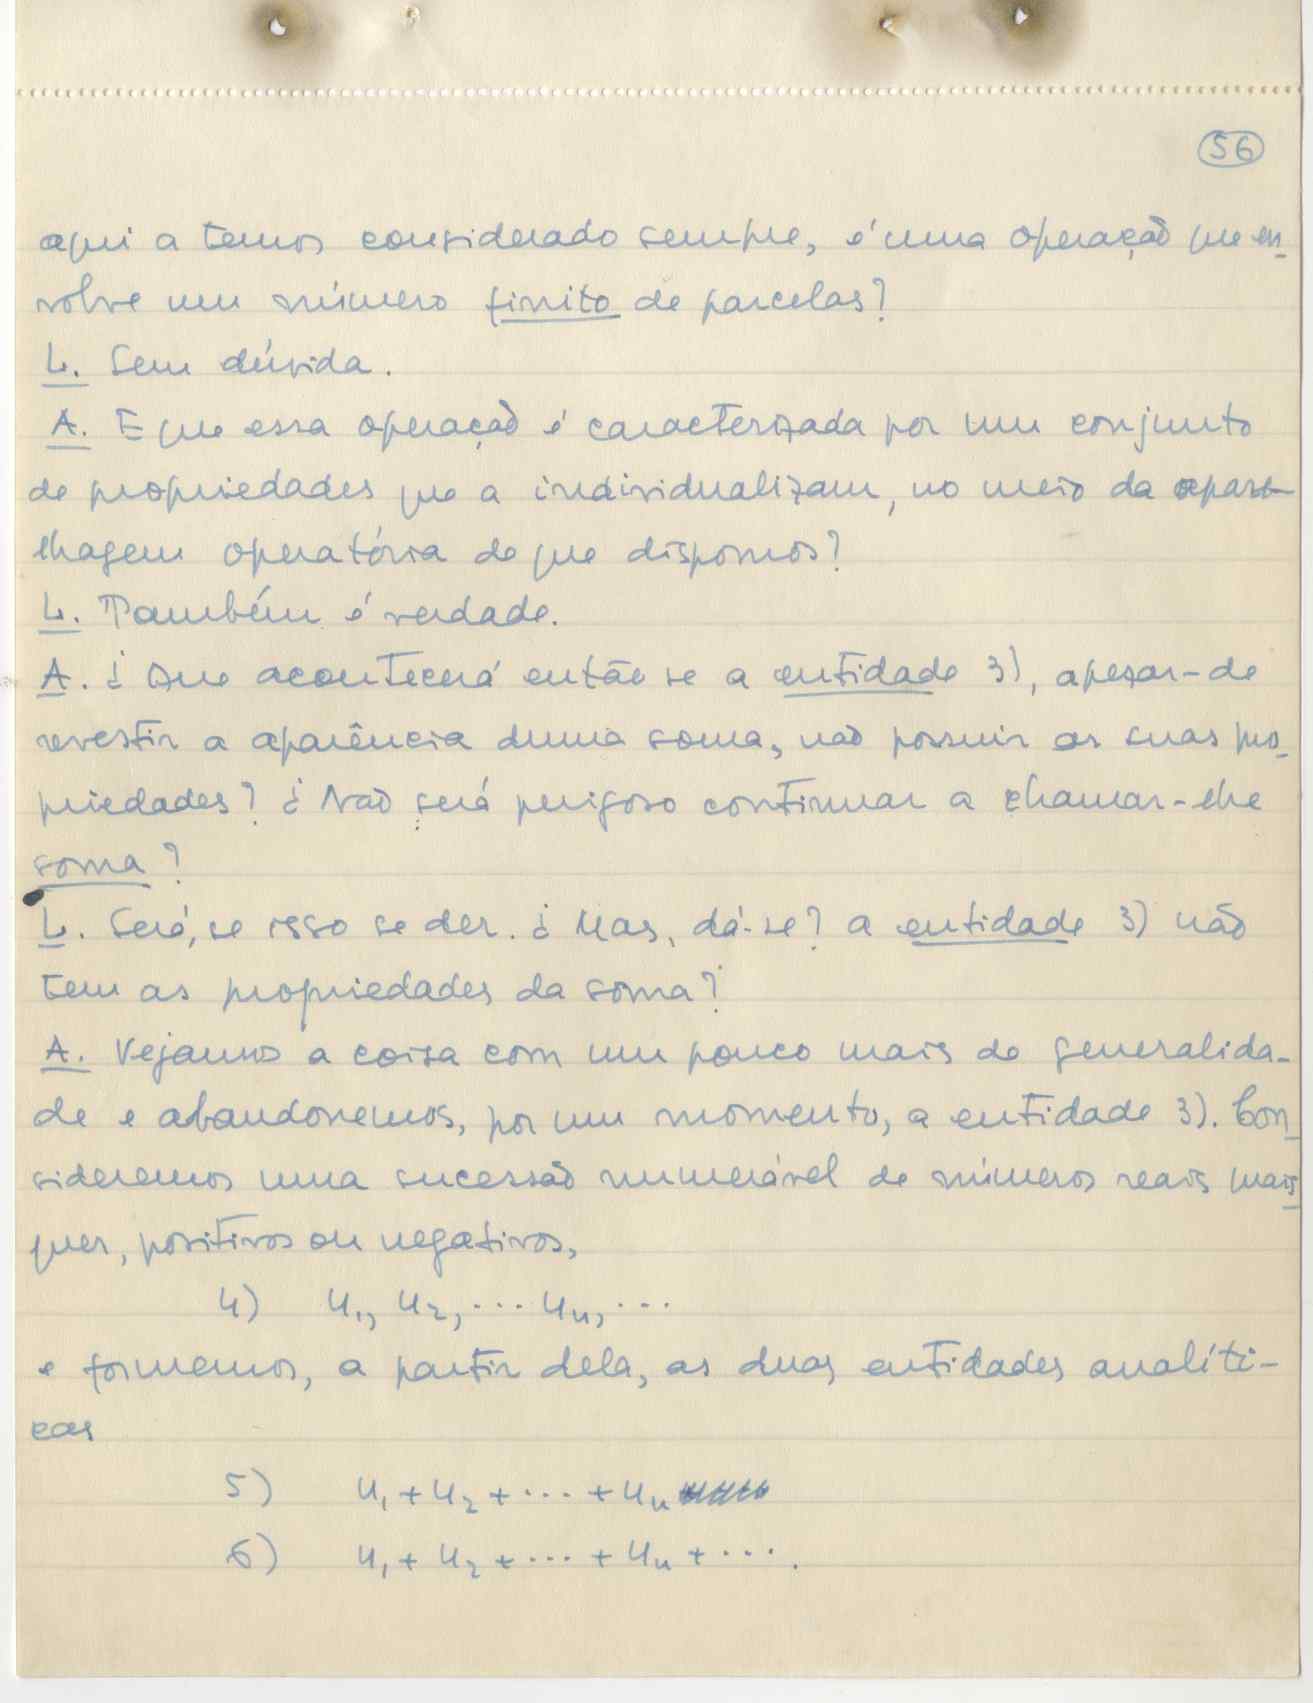 56
aqui a temos considerado sempre, é uma operação que en-
volve um número finito de parcelas?
L. Sem dúvida.
A. E que essa operação é caracterizada por um conjunto
de propriedades que a individualizam, no meio da apare-
lhagem operatória de que dispomos?
L. Também é verdade.
A. ¿ Que acontecerá então se a entidade 3), apezar-de
revestir a aparência duma soma, não possuir as suas pro-
priedades? ¿ Não será perigoso continuar a chamar-lhe
soma?
L. Será, se isso se der. ¿ Mas, dá-se? a entidade 3) não
tem as propriedades da soma?
A. Vejamos a coisa com um pouco mais de generalida-
de e abandonemos, por um momento, a entidade 3). Con-
sideremos uma sucessão numerável de números reais quais-
quer, positivos ou negativos,
4) u₁, u₂, ··· uₙ, ···
e formemos, a partir dela, as duas entidades analíti-
cas
5) u₁ + u₂ + ··· + uₙ
6) u₁ + u₂ + ··· + uₙ + ··· .